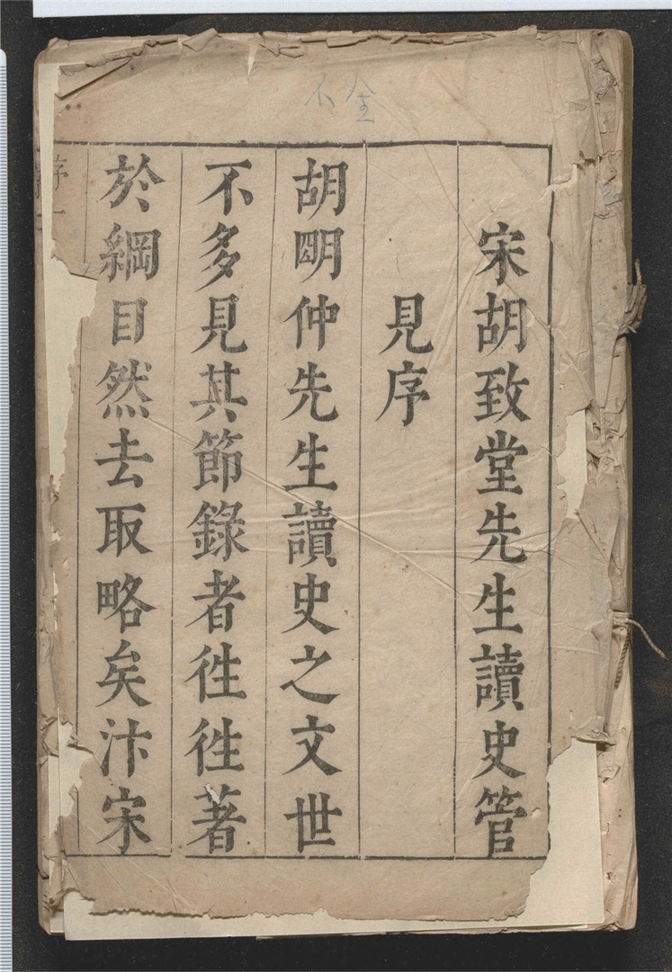 不全
宋胡致堂先生讀史管
見序
胡明仲先生讀史之文世
不多見其節錄者徃徃著
於綱目然去取略矣汴宋
序